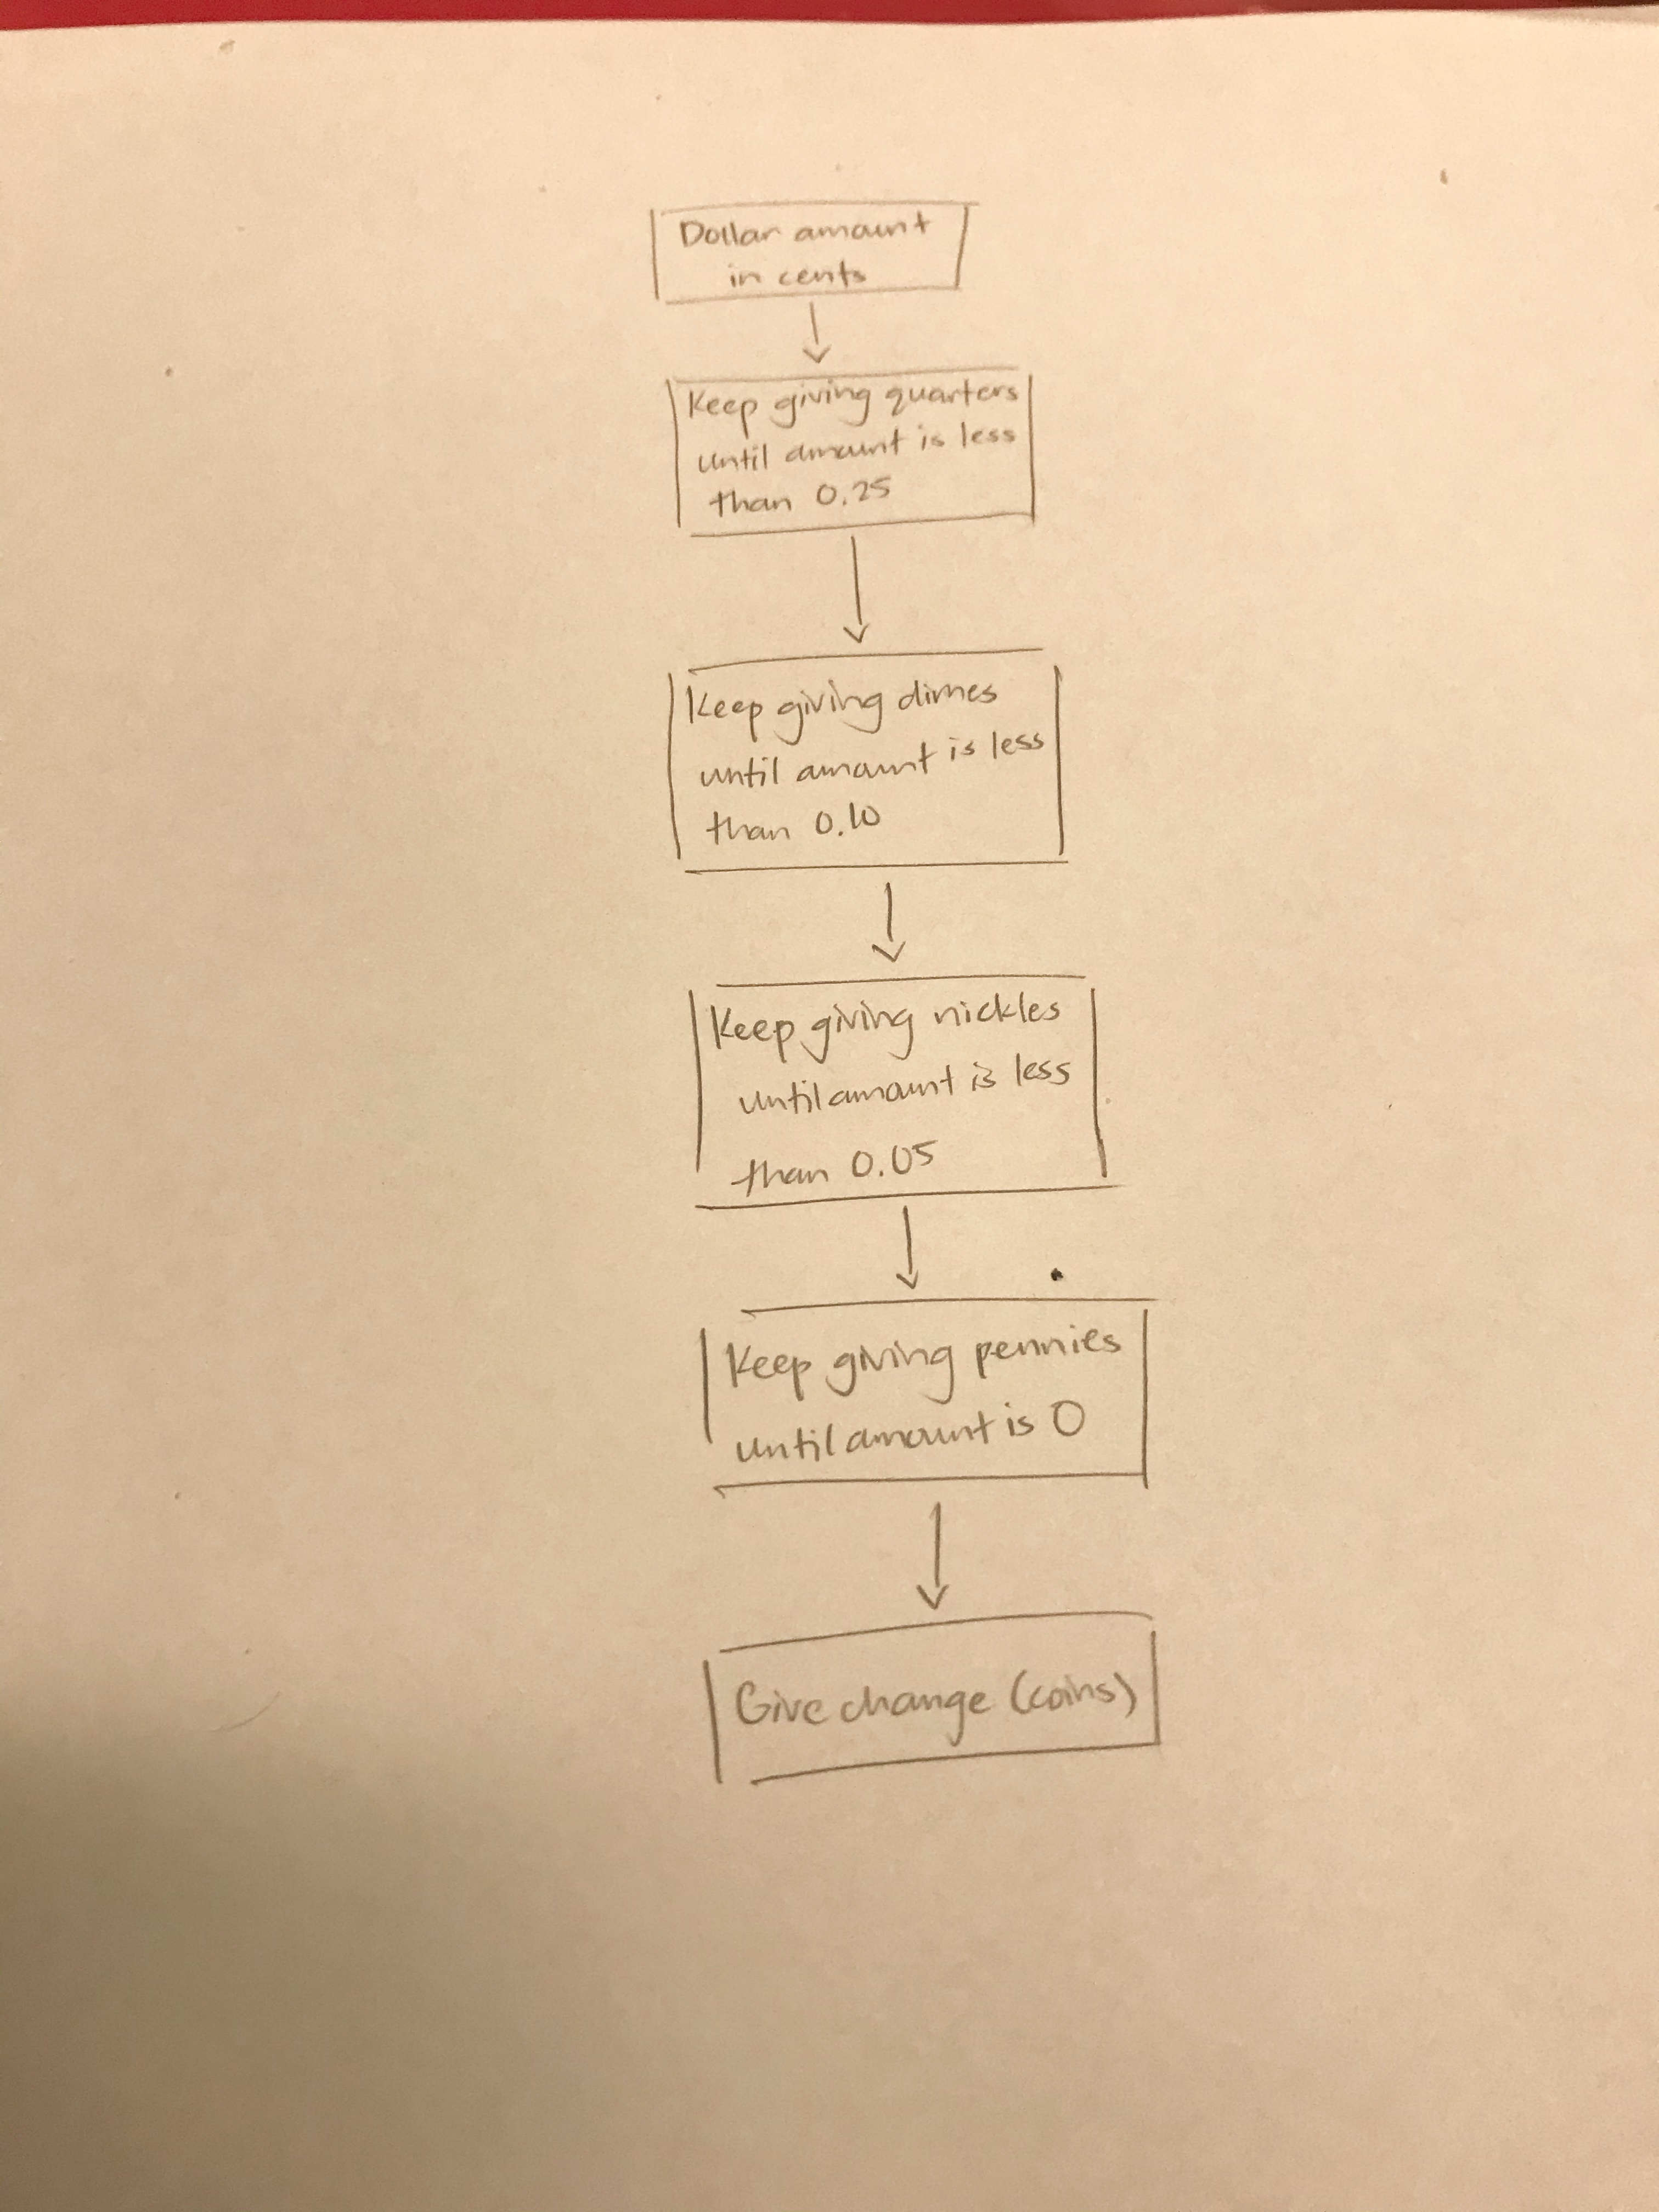 Dollar amount
in cents
Keep giving quarters
until amount is less
than 0.25
Keep giving dimes
until amount is less
than 0.10
Keep giving nickles
until amount is less
than 0.05
Keep giving pennies
until amount is 0
Give change (coins)